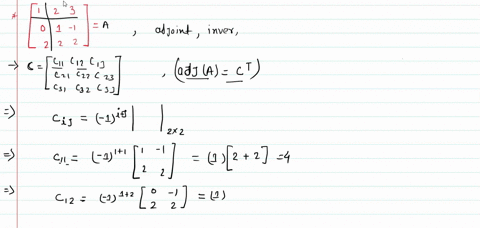 * [1 2 3
0 1 -1
2 2 2] = A , adjoint, inver,
→ C = [C11 C12 C13
C21 C22 C23
C31 C32 C33] , (adJ(A) = C^T)
=> CiJ = (-1)^iJ | |2×2
=> C11 = (-1)^1+1 [1 -1
2 2] = (1) [2 + 2] = 4
=> C12 = (-1)^1+2 [0 -1
2 2] = (1)